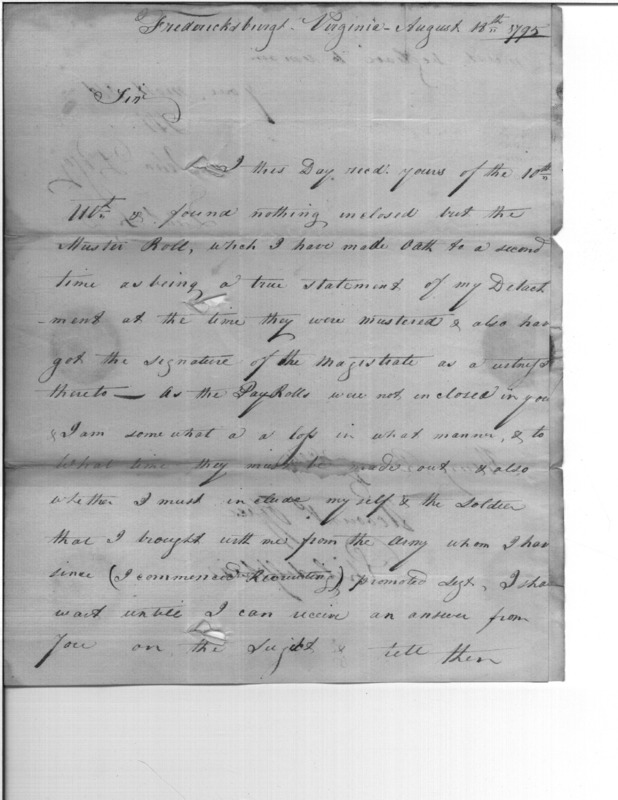 Fredericksburgh Virginia - August 18th 1795
Sir
I this Day recd. yours of the 10th
Ult. & found nothing inclosed but the
Muster Roll, which I have made Oath to a second
time as being a true statement of my Detach
-ment at the time they were mustered & also hav
got the signature of the Magistrate as a witness
thereto — As the PayRolls were not inclosed in you
& I am somewhat a a loss in what manner, & to
what time they must be made out & also
whether I must include myself & the Soldier
that I brought with me from the Army whom I hav
since (I commenced Recruiting) promoted Sgt. I sha
wait untill I can receive an answer from
you on the Subject & till then